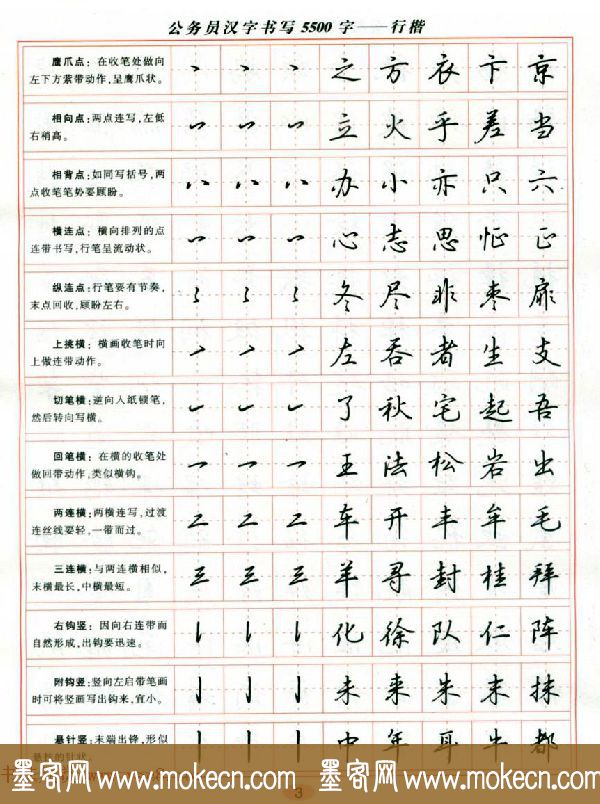 公务员汉字书写5500字——行楷
鹰爪点：在收笔处做向
左下方萦带动作，呈鹰爪状。
之 方 衣 卞 京
相向点：两点连写，左低
右稍高。
立 火 乎 差 当
相背点：如同写括号，两
点收笔笔势要顾盼。
办 小 亦 只 六
横连点：横向排列的点
连带书写，行笔呈流动状。
心 志 思 怔 正
纵连点：行笔要有节奏，
末点回收，顾盼左右。
冬 尽 非 枣 扉
上挑横：横画收笔时向
上做连带动作。
左 吞 者 生 支
切笔横：逆向入纸顿笔，
然后转向写横。
了 秋 宅 起 吾
回笔横：在横的收笔处
做回带动作，类似横钩。
王 法 松 岩 出
两连横：两横连写，过渡
连丝线要轻，一带而过。
车 开 丰 牟 毛
三连横：与两连横相似，
末横最长，中横最短。
羊 寻 封 桂 拜
右钩竖：因向右连带而
自然形成，出钩要迅速。
化 徐 队 仁 阵
附钩竖：竖向左启带笔画
时可将竖画写出钩来，宜小。
未 来 朱 末 抹
悬针竖：末端出锋，形似
悬挂的针状。
中 年 耳 牛 都
3
墨客网 www.mokecn.com 墨客网 www.mokecn.com